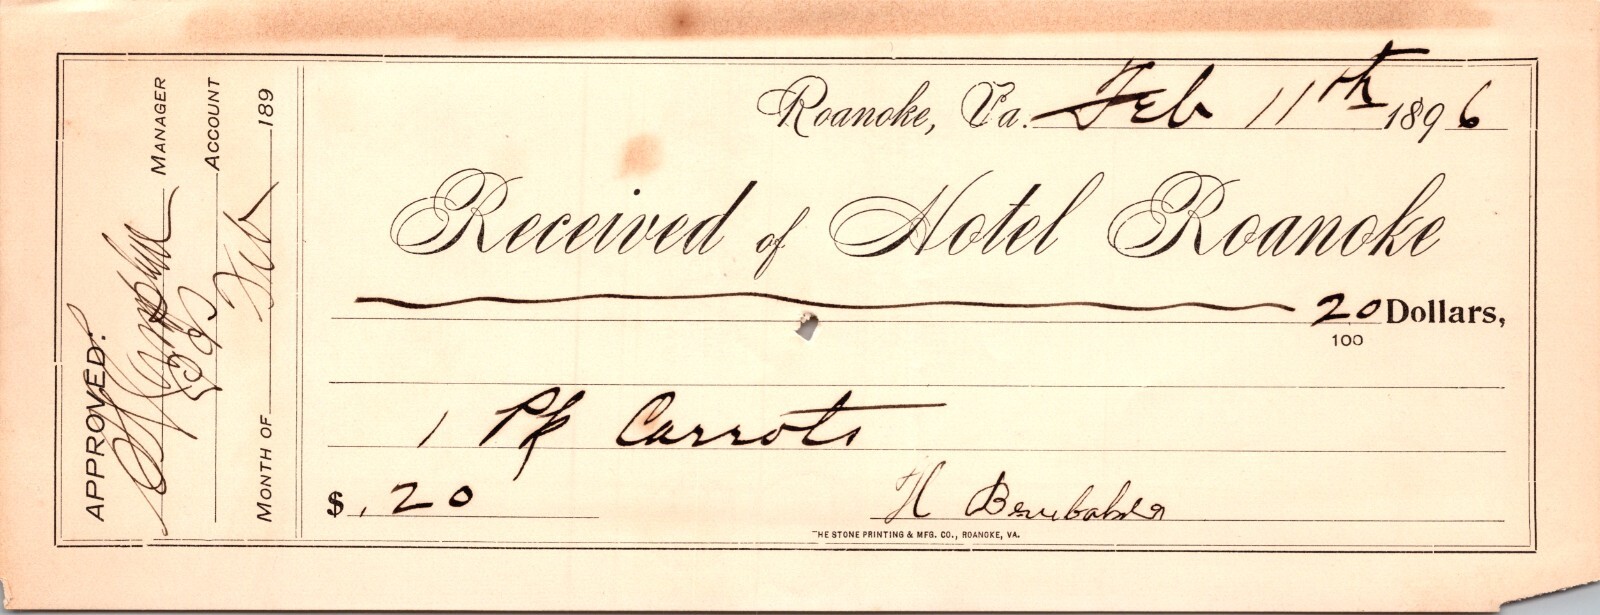 APPROVED:
MANAGER
ACCOUNT
MONTH OF Feb 189
Roanoke, Va. Feb 11th 1896
Received of Hotel Roanoke
20 Dollars,
100
1 Pk Carrots
$ .20 H
THE STONE PRINTING & MFG. CO., ROANOKE, VA.